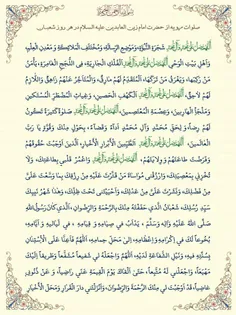 صلوات مرویه از حضرت امام زین العابدین علیه السلام در هر روز شعبان
اَللّهُمَّ صَلِّ عَلی مُحَمَّدٍ وَآلِ مُحَمَّدٍ شَجَرَةِ النُّبُوَّةِ وَمَوْضِعِ الرِّسالَةِ وَمُخْتَلَفِ الْمَلائِکَةِ وَمَعْدِنِ الْعِلْمِ
وَاَهْلِ بَیْتِ الْوَحْیِ اَللّهُمَّ صَلِّ عَلی مُحَمَّدٍ وَآلِ مُحَمَّدٍ الْفُلْکِ الْجارِیَةِ فِی اللُّجَجِ الْغامِرَةِ یَاْمَنُ
مَنْ رَکِبَها وَیَغْرَقُ مَنْ تَرَکَهَا الْمُتَقَدِّمُ لَهُمْ مارِقٌ وَالْمُتَاَخِّرُ عَنْهُمْ زاهِقٌ وَاللاّزِمُ
لَهُمْ لاحِقٌ اَللّهُمَّ صَلِّ عَلی مُحَمَّدٍ وَآلِ مُحَمَّدٍ الْکَهْفِ الْحَصینِ وَغِیاثِ الْمُضْطَرِّ الْمُسْتَکینِ
وَمَلْجَاِ الْهارِبینَ وَعِصْمَةِ الْمُعْتَصِمینَ اَللّهُمَّ صَلِّ عَلی مُحَمَّدٍ وَآلِ مُحَمَّدٍ صَلوةً کَثیرَةً تَکُونُ
لَهُمْ رِضاً وَلِحَقِّ مُحَمَّدٍ وَآلِ مُحَمَّدٍ اَداءً وَقَضاءً بِحَوْلٍ مِنْکَ وَقُوَّةٍ یا رَبَّ
الْعالَمینَ اَللّهُمَّ صَلِّ عَلی مُحَمَّدٍ وَآلِ مُحَمَّدٍ الطَّیِّبینَ الْاَبْرارِ الْاَخْیارِ الَّذینَ اَوْجَبْتَ حُقُوقَهُمْ
وَفَرَضْتَ طاعَتَهُمْ وَوِلایَتَهُمْ اَللّهُمَّ صَلِّ عَلی مُحَمَّدٍ وَآلِ مُحَمَّدٍ وَاعْمُرْ قَلْبی بِطاعَتِکَ وَلا
تُخْزِنی بِمَعْصِیَتِکَ وَارْزُقْنی مُواساةَ مَنْ قَتَّرْتَ عَلَیْهِ مِنْ رِزْقِکَ بِما وَسَّعْتَ عَلَیَّ
مِنْ فَضْلِکَ وَنَشَرْتَ عَلَیَّ مِنْ عَدْلِکَ وَاَحْیَیْتَنی تَحْتَ ظِلِّکَ وَهذا شَهْرُ نَبِیِّکَ
سَیِّدِ رُسُلِکَ شَعْبانُ الَّذی حَفَفْتَهُ مِنْکَ بِالرَّحْمَةِ وَالرِّضْوانِ الَّذی کانَ رَسُولُ اللهِ
صَلَّی اللهُ عَلَیْهِ وَآلِهِ وَسَلَّمَ یَدْاَبُ فی صِیامِهِ وَقِیامِهِ فی لَیالیهِ وَاَیّامِهِ
بُخُوعاً لَکَ فی اِکْرامِهِ وَاِعْظامِهِ اِلی مَحَلِّ حِمامِهِ اَللّهُمَّ فَاَعِنّا عَلَی الْاِسْتِنانِ
بِسُنَّتِهِ فیهِ وَنَیْلِ الشَّفاعَةِ لَدَیْهِ اَللّهُمَّ وَاجْعَلْهُ لی شَفیعاً مُشَفَّعاً وَطَریقاً اِلَیْکَ
مَهْیَعاً وَاجْعَلْنی لَهُ مُتَّبِعاً حَتّی اَلْقاکَ یَوْمَ الْقِیمَةِ عَنّی راضِیاً وَ عَنْ ذُنُوبی
غاضِیاً قَدْ اَوْجَبْتَ لی مِنْکَ الرَّحْمَةَ وَالرِّضْوانَ وَاَنْزَلْتَنی دارَ الْقَرارِ وَمَحَلَّ الْاَخْیارِ